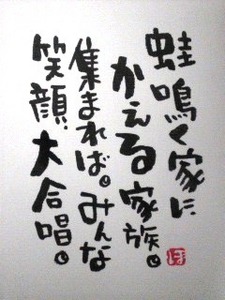 蛙鳴く家に
かえる家族。
集まれば。みんな
笑顔、大合唱。
ほ